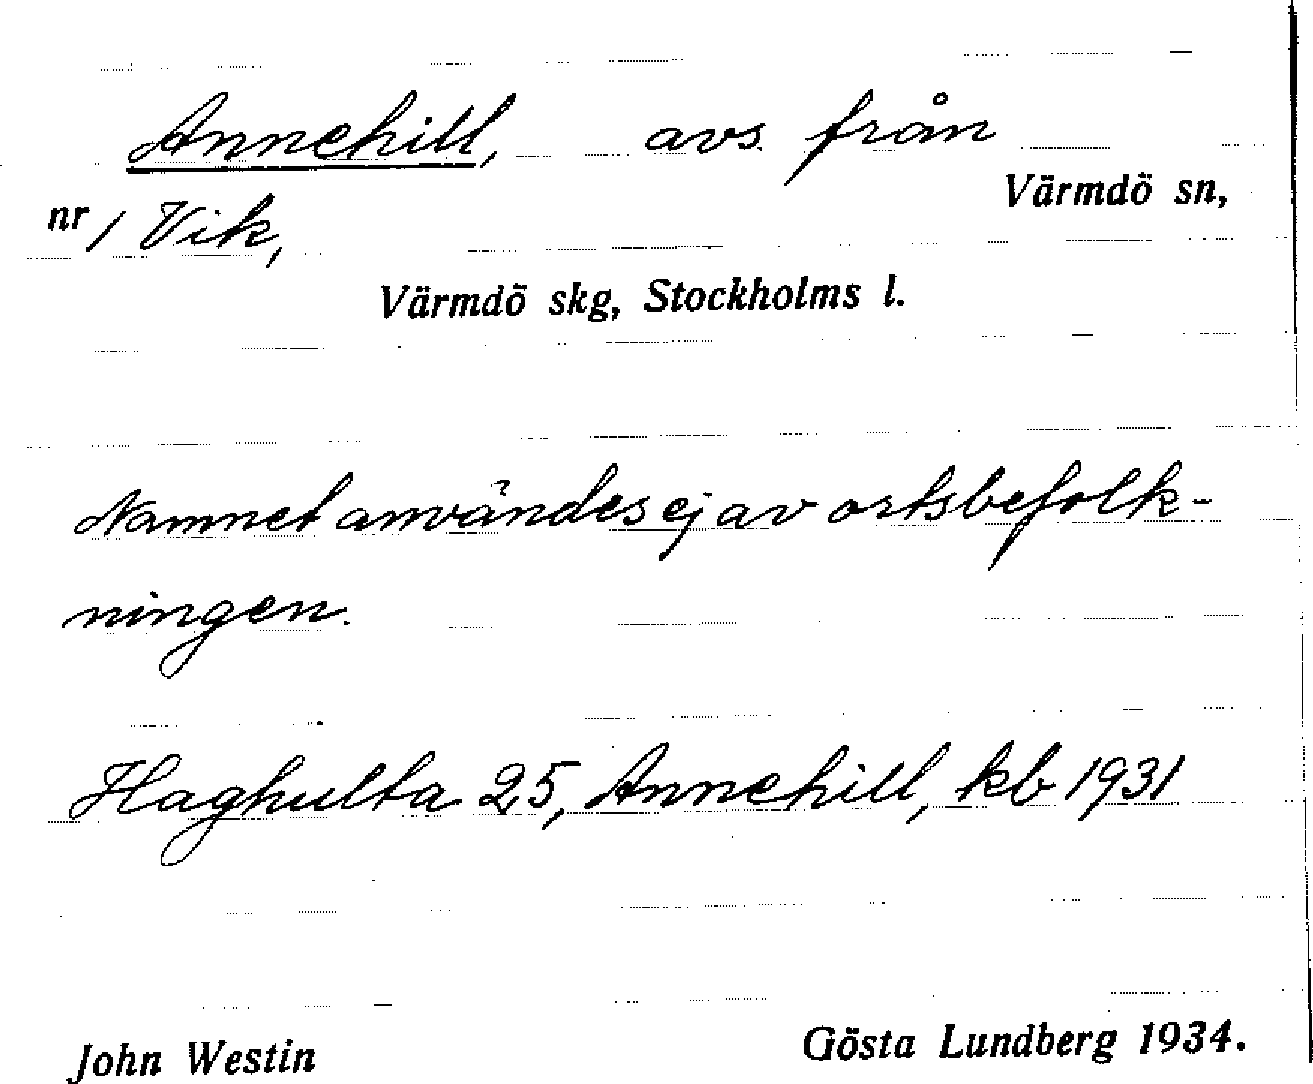 Annehill, avs. från
Värmdö sn,
nr 1 Vik,
Värmdö skg, Stockholms l.
Namnet användes ej av ortsbefolk-
ningen.
Haghulta 25, Annehill, kb 1931
John Westin
Gösta Lundberg 1934.